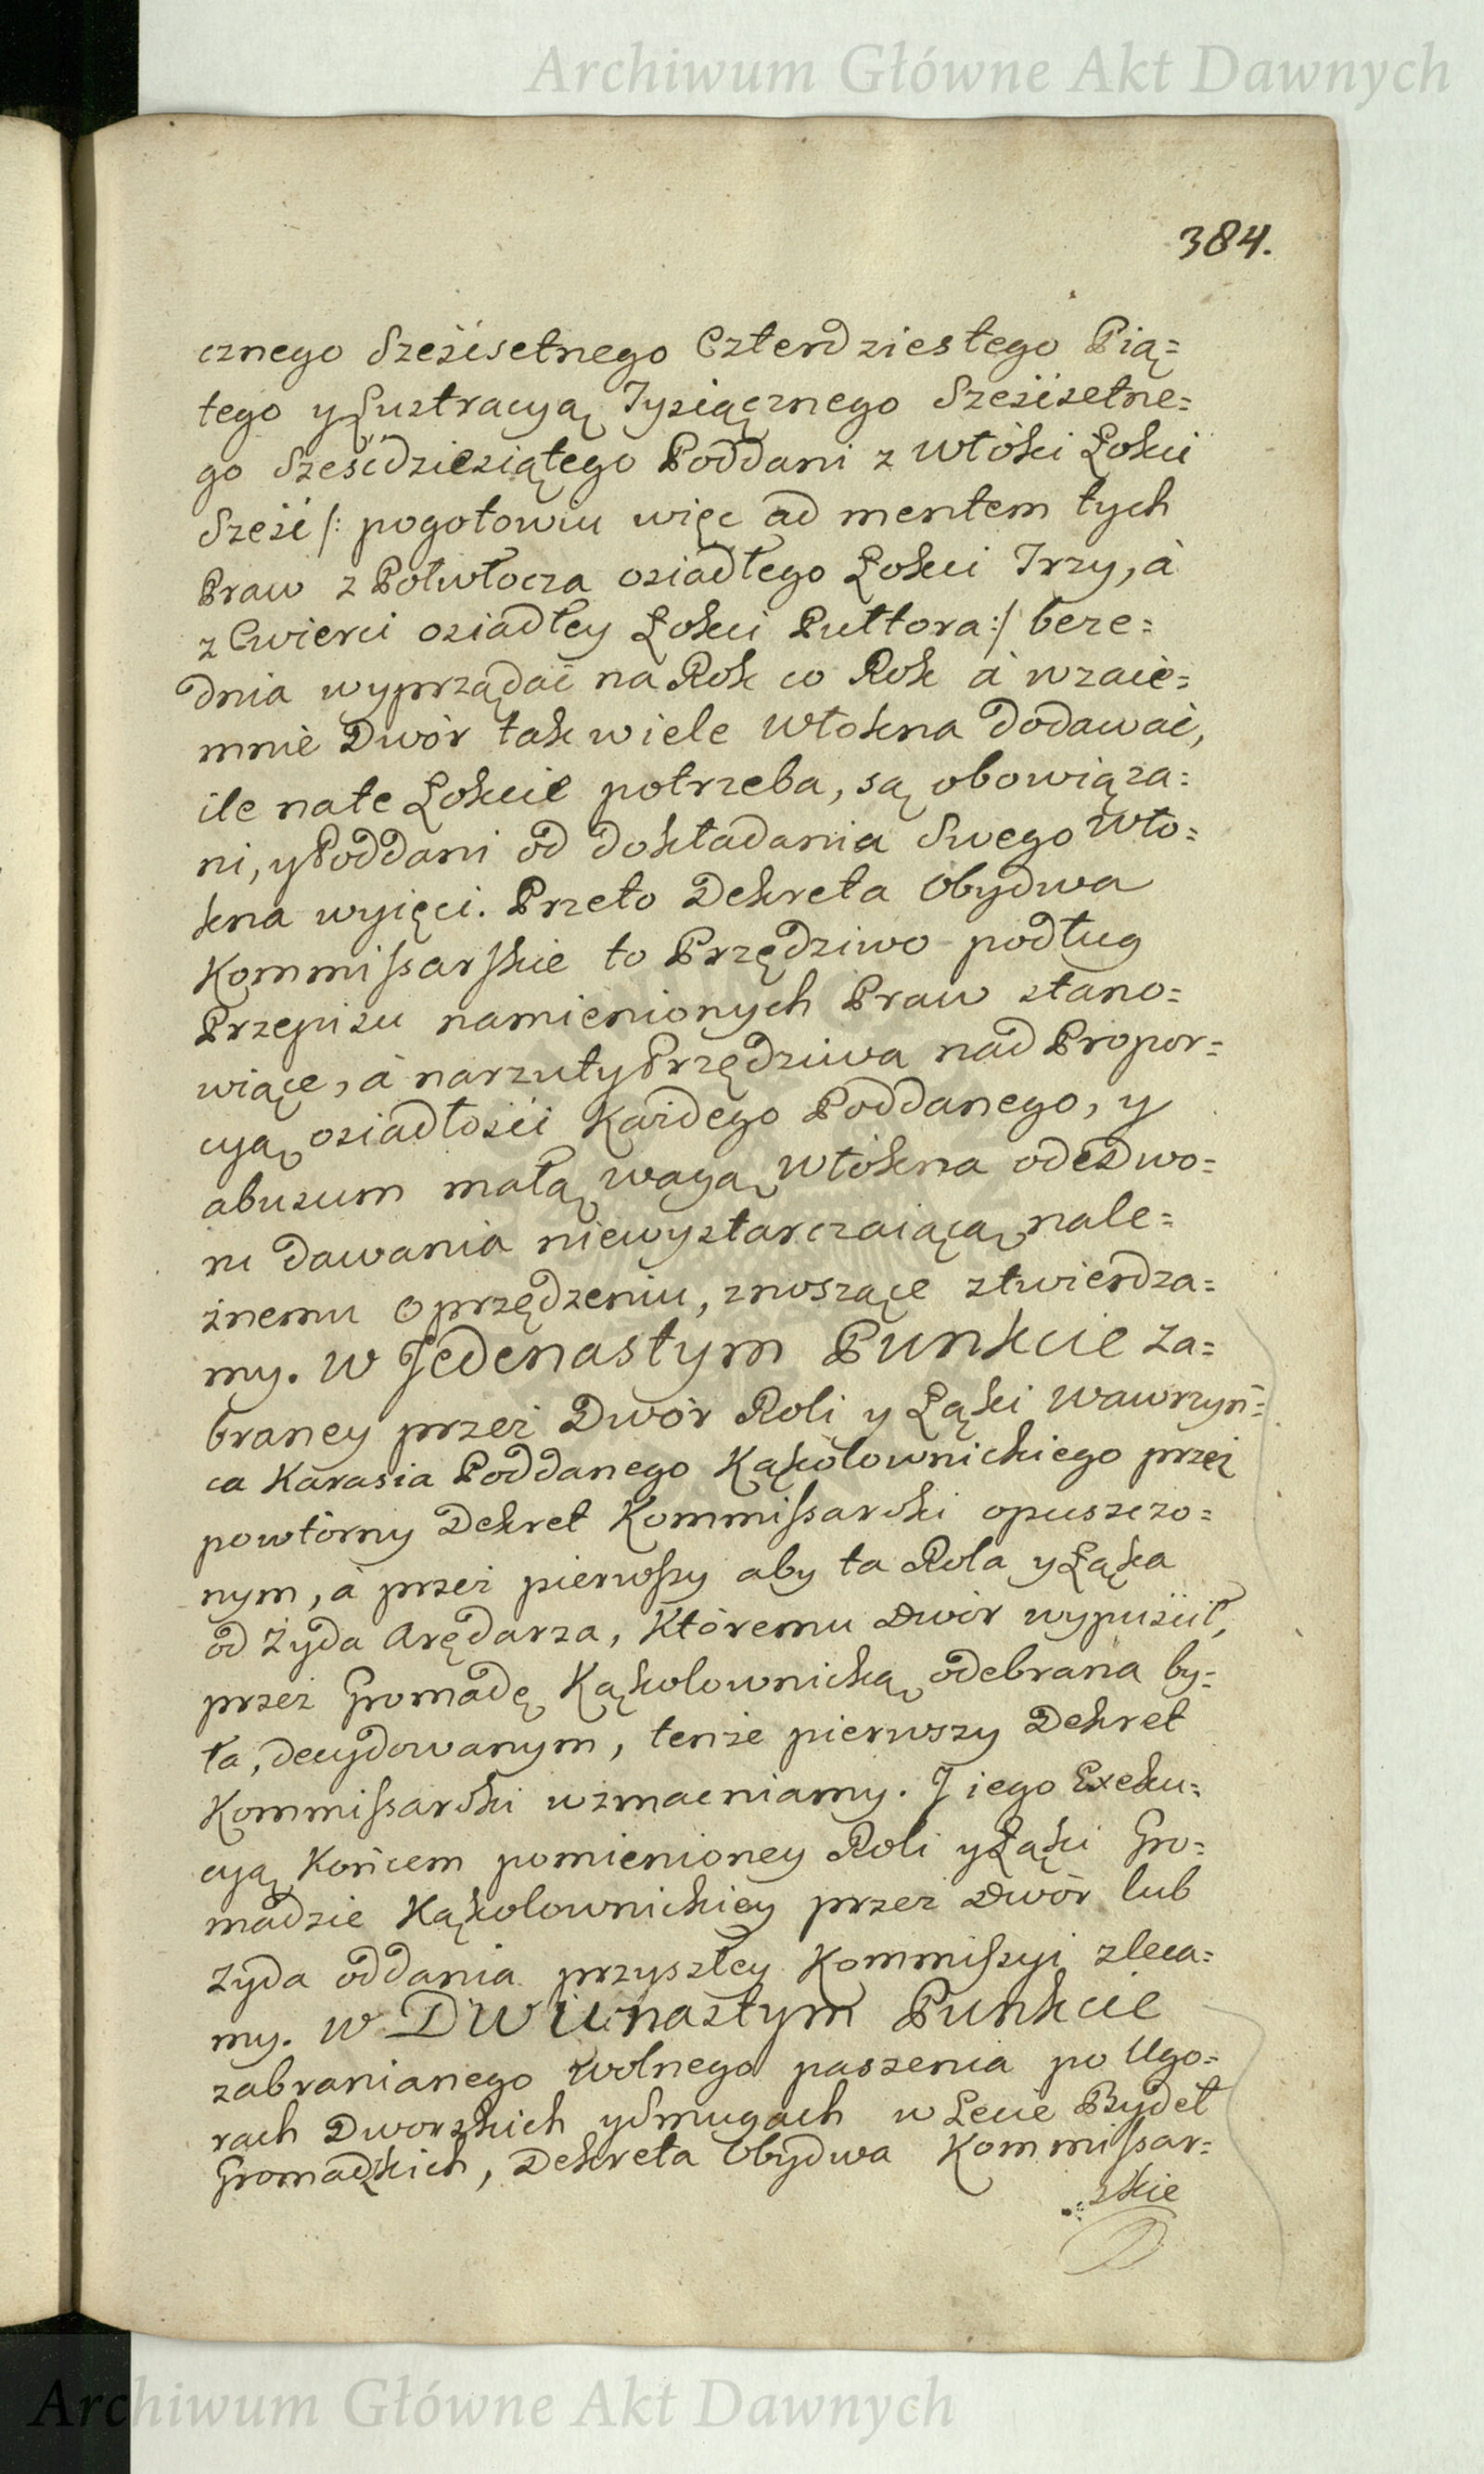 Archiwum Główne Akt Dawnych
384.
cznego Sześćsetnego Czterdziestego Pią=
tego y Lustracyą Tysiącznego Sześćsetne=
go Sześćdziesiątego Poddani z Włóki Łokci
Sześć /: pogotowiu więc ad mentem tych
Praw z Połwłocza osiadłego Łokci Trzy, à
z Cwierci osiadłey Łokci Pułtora :/ beze=
dnia wyprządać na Rok co Rok à wzaie=
mnie Dwór tak wiele Włokna dodawać,
ile na te Łokcie potrzeba, są obowiąza=
ni, y Poddani od dokładania Swego Wło=
kna wyięci. Przeto Dekreta Obydwa
Kommissarskie to Przędziwo podług
Przepisu namienionych Praw stano=
wiące, à narzuty Przędziwa nad Propor=
cyą osiadłości Każdego Poddanego, y
abusum małą wagą Włókna ode Dwo=
ru dawania niewystarczaiącą nale=
żnemu oprzędzeniu, znoszące ztwierdza=
my. W Jedenastym Punkcie za=
braney przez Dwór Roli y Łąki Wawrzyń=
ca Karasia Poddanego Kąkolownickiego przez
powtórny Dekret Kommissarski opuszczo=
nym, à przez pierwszy aby ta Rola y Łąka
od Żyda Arędarza, Któremu Dwór wypuścił,
przez Gromadę Kąkolownicką odebrana by=
ła, decydowanym, tenże pierwszy Dekret
Kommissarski wzmacniamy. J iego Exeku=
cyą Końcem pomienioney Roli y Łąki Gro=
madzie Kąkolownickiey przez Dwór lub
Żyda oddania przyszłey Kommissyi zleca=
my. W Dwunastym Punkcie
zabranianego wolnego paszenia po Ugo=
rach Dworskich y Smugach w Lecie Bydeł
Gromadzkich, Dekreta Obydwa Kommissar=
skie
Archiwum Główne Akt Dawnych